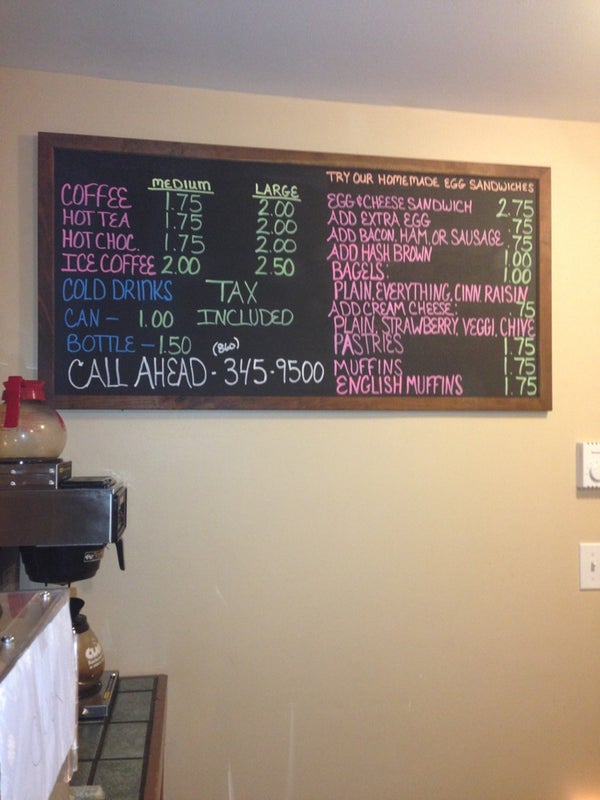 MEDIUM LARGE
COFFEE 1.75 2.00
HOT TEA 1.75 2.00
HOT CHOC. 1.75 2.00
ICE COFFEE 2.00 2.50
COLD DRINKS
CAN - 1.00
BOTTLE - 1.50
TAX
INCLUDED
(860)
CALL AHEAD - 345-9500
TRY OUR HOMEMADE EGG SANDWICHES
EGG & CHEESE SANDWICH 2.75
ADD EXTRA EGG .75
ADD BACON, HAM, OR SAUSAGE .75
ADD HASH BROWN 1.00
BAGELS: 1.00
PLAIN, EVERYTHING, CINN RAISIN
ADD CREAM CHEESE: .75
PLAIN, STRAWBERRY, VEGGI, CHIVE
PASTRIES 1.75
MUFFINS 1.75
ENGLISH MUFFINS 1.75